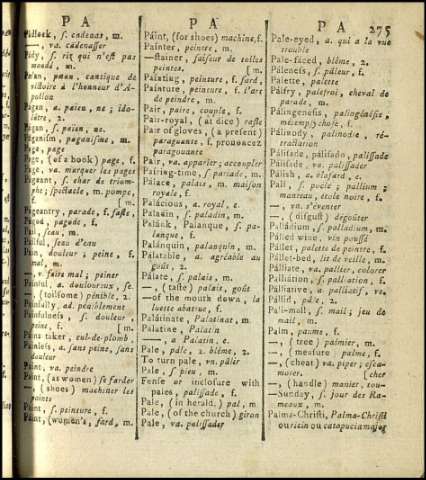 P A
P A
P A
275
Pádlock, s. cadenas, m.
—, va. cadenasser
Pády, s. riz qui n'est pas
mondé, m.
Pæan, pæan, cantique de
victoire à l'honneur d'A-
pollon
Págan, a. païen, ne; ido-
lâtre, 2.
Págan, s. païen, ne.
Páganism, paganisme, m.
Page, page
Page, (of a book) page, f.
Page, va. marquer les pages
Págeant, s. char de triom-
phe; spectacle, m. pompe,
f. [m.
Págeantry, parade, f. faste,
Págod, pagode, f.
Pail, seau, m.
Páilful, seau d'eau
Pain, douleur; peine, f.
mal, m.
—, v. faire mal; peiner
Páinful, a. douloureux, se.
—, (toilsome) pénible, 2.
Páinfully, ad. péniblement
Páinfulness, s. douleur,
peine, f. [m.
Páins taker, cul-de-plomb,
Páinless, a. sans peine, sans
douleur
Paint, va. peindre
Paint, (as women) se farder
—, (shoes) machiner les
points
Paint, s. peinture, f.
Paint, (women's, fard, m.
Paint, (for shoes) machine, f.
Painter, peintre, m.
—stainer, faiseur de toiles
peintes. [m.
Painting, peinture, f. fard,
Painture, peinture, f. l'art
de peindre, m.
Pair, paire, couple, f.
Pair-royal, (at dice) rafle
Pair of gloves, (a present)
paraguante, f. prononcez
paragouante
Pair, va. apparier; accoupler
Páiring-time, s. pariade, m.
Pálace, palais, m. maison
royale, f.
Palácious, a. royal, e.
Páladin, s. paladin, m.
Palánk, Palanque, s. pa-
lanque, f.
Palánquin, palanquin, m.
Pálatable, a. agréable au
goût, 2.
Pálate, s. palais, m.
—, (taste) palais, goût
—of the mouth down, la
luette abatue, f.
Palátinate, Palatinat, m.
Pálatine, Palatin
—, a. Palatin, e.
Pale, pâle, 2. blême, 2.
To turn pale, vn. pâlir
Pale, s. pieu,
Pense or inclosure with
pales, palissade, f.
Pale, (in herald,) pal, m.
Pale, (of the church) giron
Pale, va. palissader
Pale-eyed, a. qui a la vue
trouble
Pale-faced, blême, 2.
Páleness, s. pâleur, f.
Palette, palette
Pálfry, palefroi, cheval de
parade, m.
Palingenesia, palingénésie,
métempsychose, f.
Pálinody, palinodie, ré-
tractation
Palisade, palisádo, palissade
Palisade, va. palissader
Pálish, a. blafard, e.
Pall, s. poële; pallium;
manteau, étole noire, f.
—, vn. s'éventer
—, (disgust) dégoûter
Palládium, s. palladium, m.
Palled wine, vin poussé
Pállet, palette de peintre, f.
Pállet-bed, lit de veille, m.
Pálliate, va. pallier, colorer
Palliátion, s. palliation, f.
Pálliative, a. palliatif, ve.
Pállid, pâle, 2.
Pall-mall, s. mail; jeu de
mail, m.
Palm, paume, f.
—, (tree) palmier, m.
—, (mesure) palme, f.
—, (cheat) va. piper; esca-
moter. [cher
—, (handle) manier, tou-
—Sunday, s. jour des Ra-
meaux, m.
Palma-Christi, Palma-Christi
ou ricin ou catapucia major